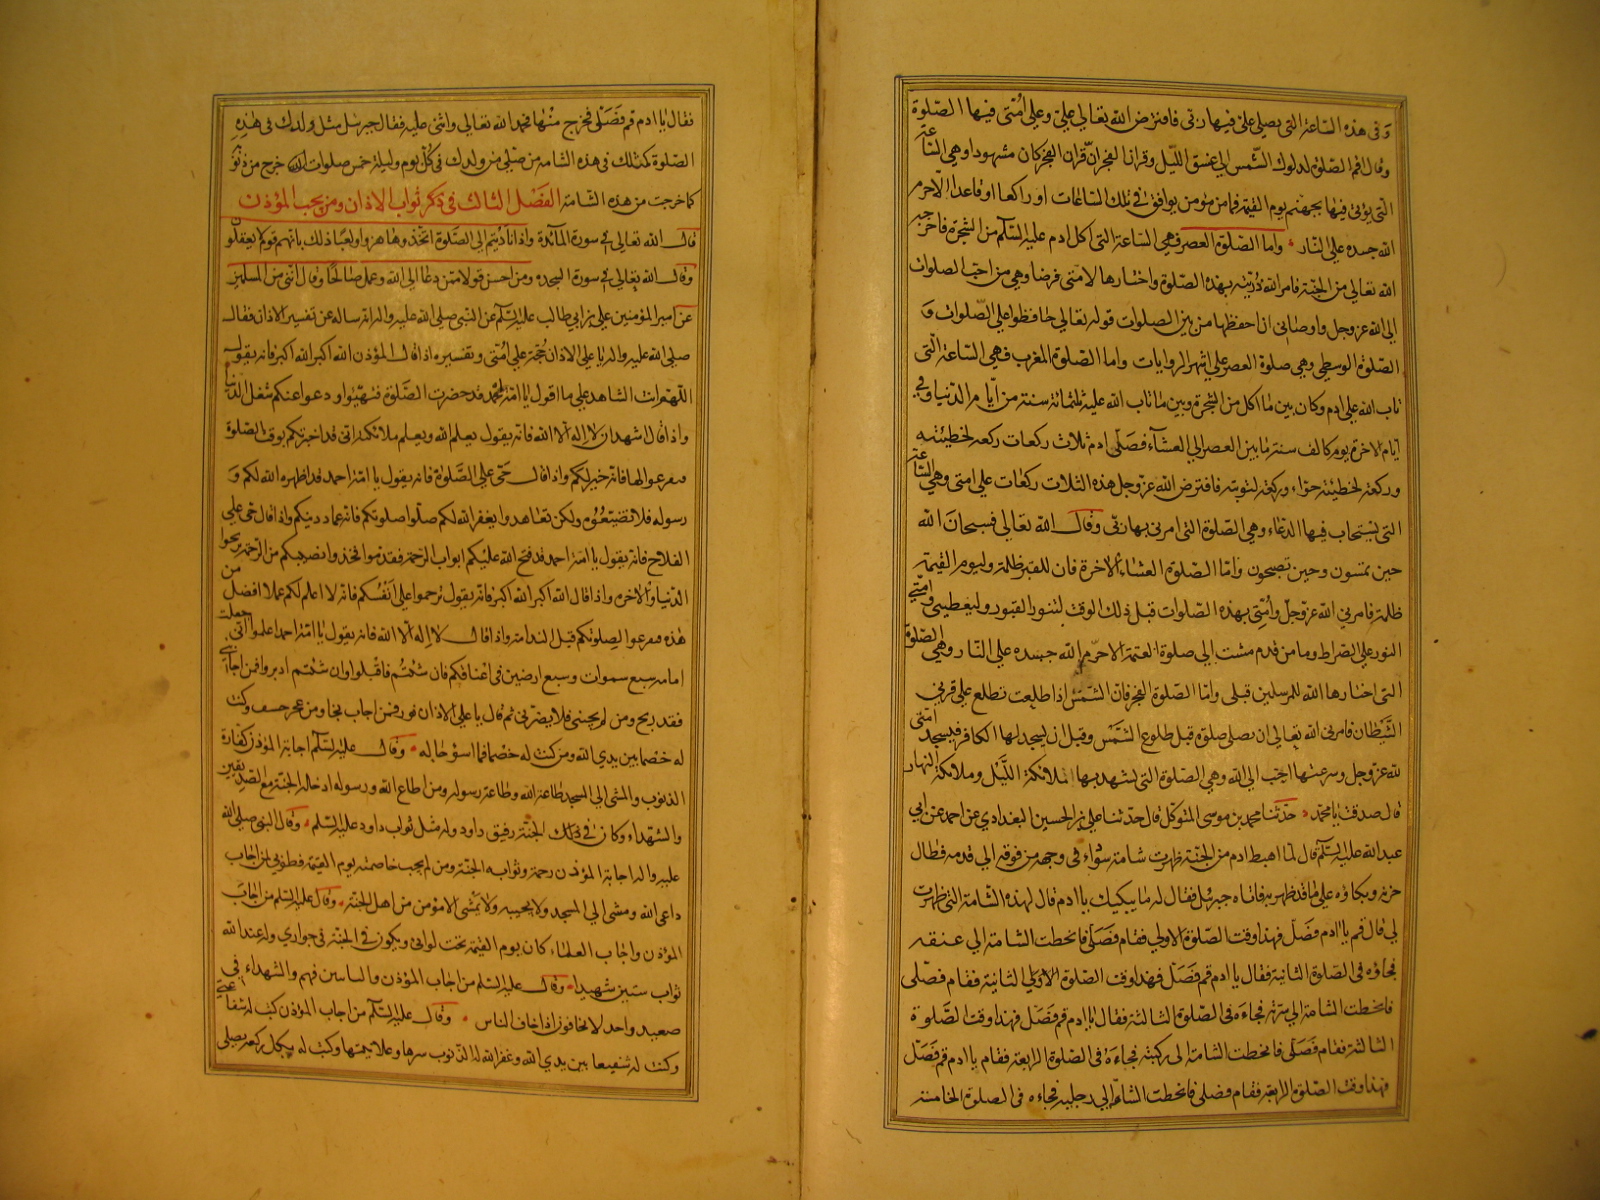 وفى هذه الساعة التى يصلى علىّ فيها ربى فافترض الله تعالى علىّ وعلى امتى فيها الصلوة
وقال اقم الصلوة لدلوك الشمس الى غسق الليل وقران الفجر ان قران الفجر كان مشهودا وهى الساعة
التى يؤتى فيها بجهنم يوم القيمة فما من مؤمن يوافق فى تلك الساعات او راكعا او قاعدا الا حرم
الله جسده على النار واما الصلوة العصر فهى الساعة التى اكل ادم عليه السلم من الشجرة فاخرجه
الله تعالى من الجنة فامر الله ذريته بهذه الصلوة واختارها لامتى فرضا وهى من احب الصلوات
الى الله عز وجل واوصانى ان احفظها من بين الصلوات قوله تعالى حافظوا على الصلوات و
الصلوة الوسطى وهى صلوة العصر على اشهر الروايات واما الصلوة المغرب فهى الساعة التى
تاب الله على ادم وكان بين ما اكل من الشجرة وبين ما تاب الله عليه ثلثمائة سنة من ايام الدنيا وفى
ايام الاخرة يوم كالف سنة ما بين العصر الى العشاء فصلى ادم ثلاث ركعات ركعة لخطيئته
وركعة لخطيئة حواء وركعة لتوبته فافترض الله عز وجل هذه الثلاث ركعات على امتى وهى الساعة
التى يستجاب فيها الدعاء وهى الصلوة التى امرنى بها ربى وقال الله تعالى فسبحان الله
حين تمسون وحين تصبحون واما الصلوة العشاء الاخرة فان للقبر ظلمة وليوم القيمة
ظلمة فامرنى الله عز وجل وامتى بهذه الصلوات قبل ذلك الوقت لتنور القبور وليعطينى وامتى
النور على الصراط وما من قدم مشت الى صلوة العتمة الا حرم الله جسده على النار وهى الصلوة
التى اختارها الله للمرسلين قبلى واما الصلوة الفجر فان الشمس اذا طلعت تطلع على قرنى
الشيطان فامرنى الله تعالى ان يصلى صلوة قبل طلوع الشمس وقبل ان يسجد لها الكافر فيسجد امتى
لله عز وجل وسرعتها احب الى الله وهى الصلوة التى تشهد بها الملائكة الليل وملائكة النهار
قال صدقت يا محمد حدثنا محمد بن موسى المتوكل قال حدثنا على بن الحسين البغدادى عن احمد عن ابى
عبد الله عليه السلم قال لما اهبط ادم من الجنة ظهرت شامة سوداء فى وجهه من فوقه الى قدمه فطال
حزنه وبكاؤه على ما قد ظهر به فاتاه جبرئيل فقال له ما يبكيك يا ادم قال لهذه الشامة التى ظهرت
لى قال قم يا ادم فصل فهذا وقت الصلوة الاولى فقام فصلى فانحطت الشامة الى عنقه
فجاؤه فى الصلوة الثانية فقال يا ادم قم فصل فهذا وقت الصلوة الاولى الثانية فقام فصلى
فانحطت الشامة الى سرته فجاءه فى الصلوة الثالثة فقال يا ادم قم فصل فهذا وقت الصلوة
الثالثة فقام فصلى فانحطت الشامة الى ركبته فجاءه فى الصلوة الرابعة فقام يا ادم قم فصل
فهذا وقت الصلوة الرابعة فقام فصلى فانحطت الشامة الى رجليه فجاءه فى الصلوة الخامسة
فقال يا ادم قم فصلى فخرج منها فحمد الله تعالى واثنى عليه فقال جبرئيل مثل ولدك فى هذه
الصلوة كمثلك فى هذه الشامة من صلى من ولدك فى كل يوم وليلة خمس صلوات لله خرج من ذنوبه
كما خرجت من هذه الشامة الفصل الثالث فى ذكر ثواب الاذان ومن يجب المؤذن
قال الله تعالى فى سورة المائدة واذا ناديتم الى الصلوة اتخذوها هزوا ولعبا ذلك بانهم قوم لا يعقلون
وقال الله تعالى فى سورة السجده ومن احسن قولا ممن دعا الى الله وعمل صالحا وقال اننى من المسلمين
عن امير المؤمنين على بن ابى طالب عليه السلم عن النبى صلى الله عليه واله انه ساله عن تفسير الاذان فقال
صلى الله عليه واله يا على الاذان حجة على امتى وتفسيره اذا قال المؤذن الله اكبر الله اكبر فانه يقول
اللهم انت الشاهد على ما اقول يا امة محمد قد حضرت الصلوة فتهيئوا ودعوا عنكم شغل الدنيا
واذا قال اشهد ان لا اله الا الله فانه يقول يعلم الله ويعلم ملائكته انى قد اخبرتكم بوقت الصلوة
فتفرغوا لها فانه خير لكم واذا قال حى على الصلوة فانه يقول يا امة احمد قد اظهره الله لكم و
رسوله فلا تضيعوه ولكن تعاهدوا يغفر الله لكم صلوا صلوتكم فانه عماد دينكم واذا قال حى على
الفلاح فانه يقول يا امة احمد قد فتح الله عليكم ابواب الرحمة فقدموا فخذوا نصيبكم من الرحمة تربحوا
الدنيا والاخره واذا قال الله اكبر الله اكبر فانه يقول ترحموا على انفسكم فانه لا اعلم لكم عملا افضل من
هذه فتفرغوا لصلوتكم قبل الندامة واذا قال لا اله الا الله فانه يقول يا امة احمد اعلموا انى جعلت
امامه سبع سموات وسبع ارضين فى اعناقكم فان شئتم فاقبلوا وان شئتم ادبروا فمن اجابنى
فقد ربح ومن لم يجبنى فلا يضرنى ثم قال يا على الاذان نور فمن اجاب نجا ومن عجز خسف وكنت
له خصما بين يدى الله ومن كنت له خصما فما اسوء حاله وقال عليه السلم اجابة المؤذن كفارة
الذنوب والمشى الى المسجد طاعة الله وطاعة رسوله ومن اطاع الله ورسوله ادخله الجنة مع الصديقين
والشهداء وكان فى الجنة رفيق داود وله مثل ثواب داود عليه السلم وقال النبى صلى الله
عليه واله اجابة المؤذن رحمة وثوابه الجنة ومن لم يجب خاصمته يوم القيمة فطوبى لمن اجاب
داعى الله ومشى الى المسجد ولا يجيبه ولا يمشى الا مؤمن من اهل الجنة وقال عليه السلم من اجاب
المؤذن واجاب العلماء كان يوم القيمة تحت لوائى ويكون فى الجنة فى جوارى وله عند الله
ثواب ستين شهيدا وقال عليه السلم من اجاب المؤذن والشهداء فى
صعيد واحد لا يخافون اذا خاف الناس وقال عليه السلم من اجاب المؤذن كنت له شفيعا
وكنت له شفيعا بين يدى الله وغفر الله له الذنوب سرها وعلانيتها وكتب له بكل ركعة يصلى